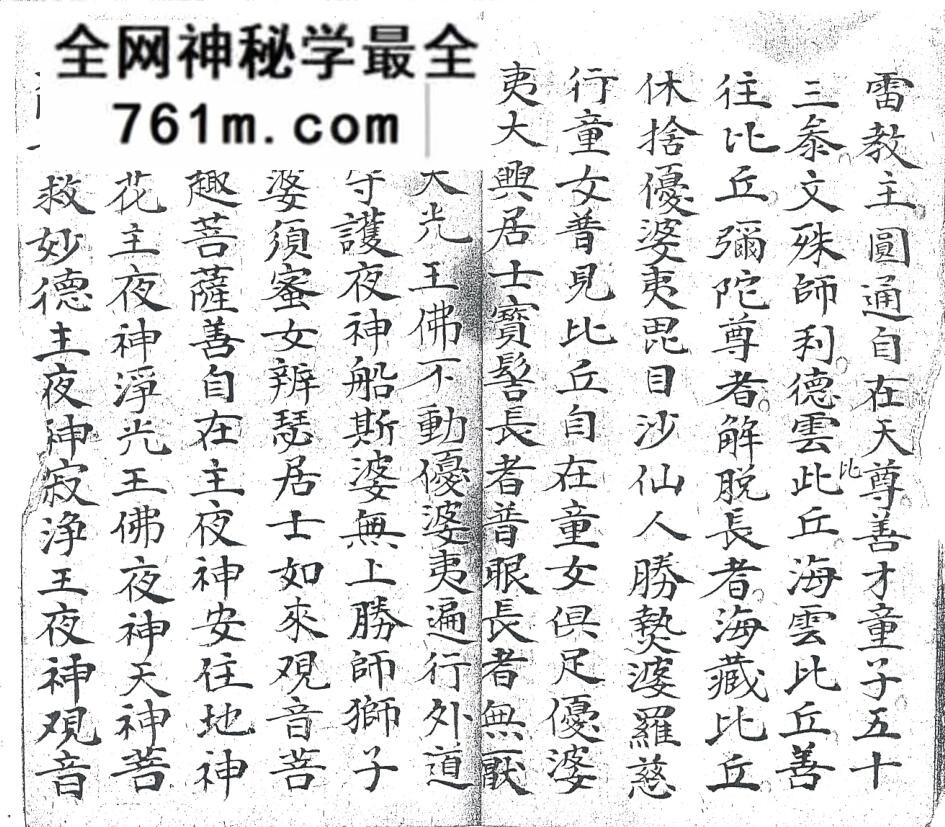 全网神秘学最全
761m.com
雷教主圓通自在天尊善才童子五十
三叅文殊師利德雲此丘海雲比丘善
比
往比丘彌陀尊者解脱長者海藏比丘
休捨優婆夷毘目沙仙人勝㷀婆羅慈
行童女普見比丘自在童女俱足優婆
夷大興居士寳髻長者普眼長者無厭
大光王佛不動優婆夷遍行外道
守護夜神船斯婆無上勝師獅子
婆須蜜女辨瑟居士如來观音菩
趣菩薩善自在主夜神安住地神
花主夜神淨光王佛夜神天神菩
救妙德主夜神寂浄王夜神观音